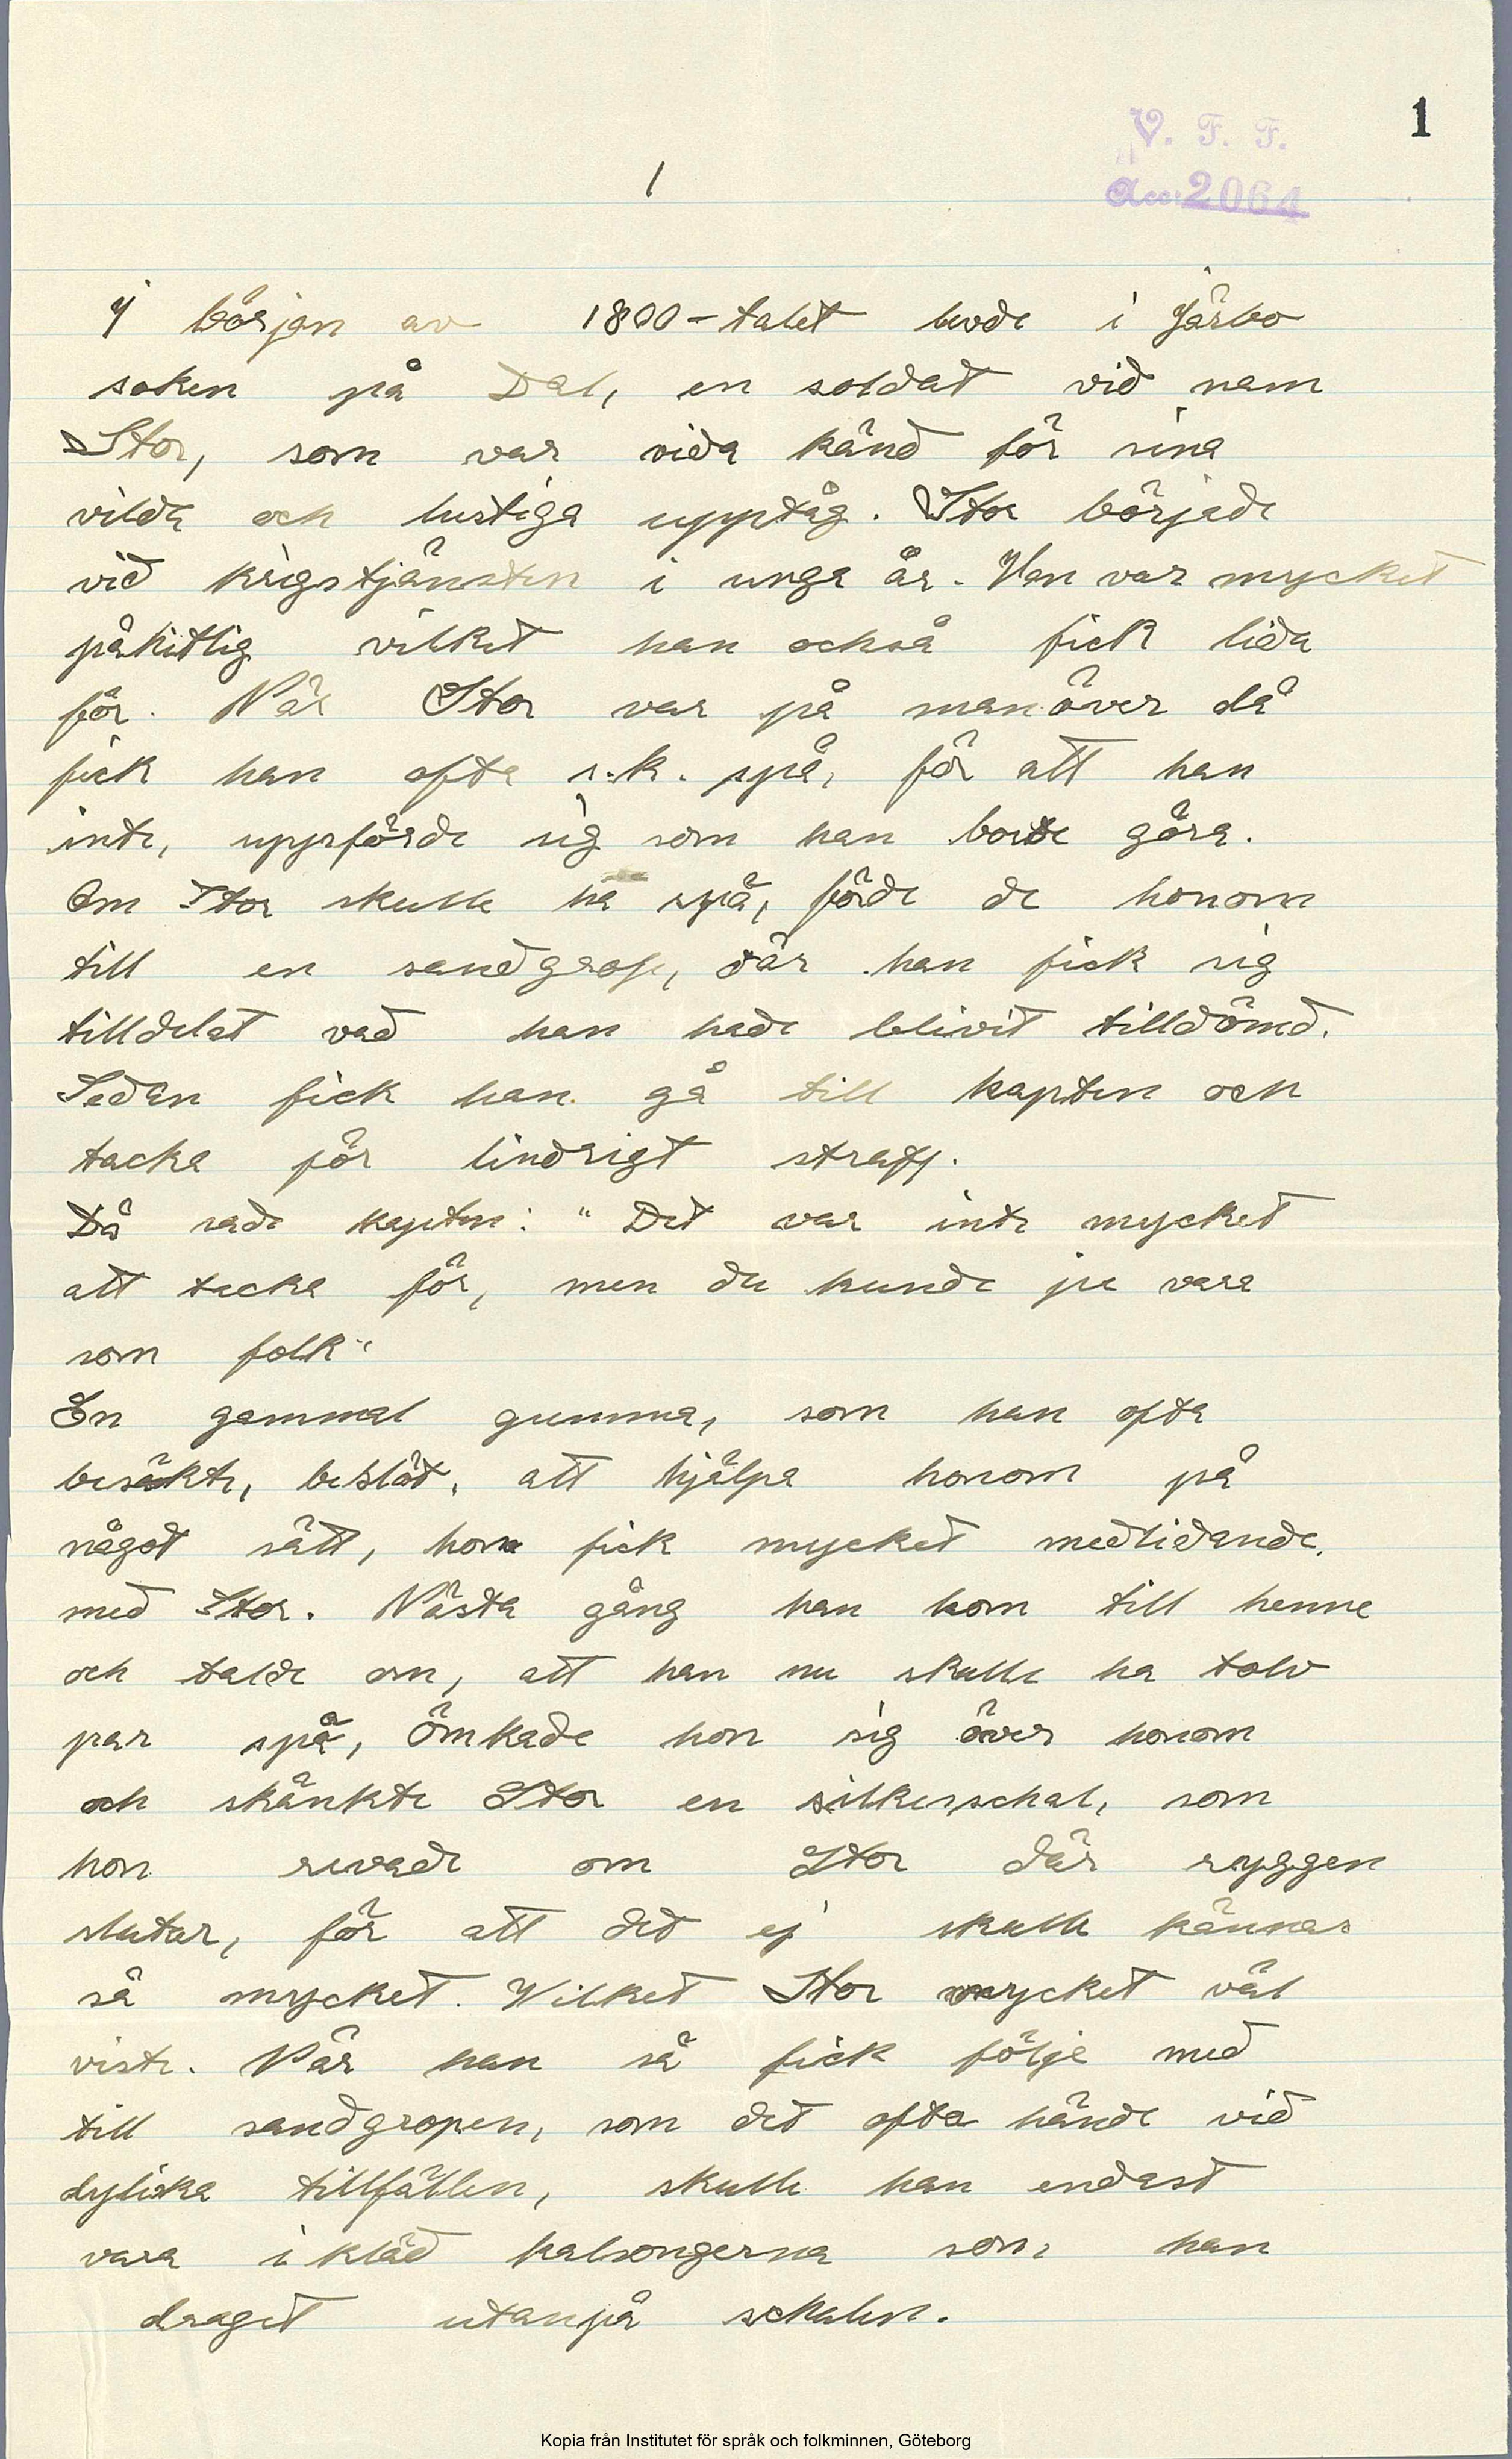 1
V. F. F.
Acc: 2064
1
I början av 1800-talet levde i Järbo
soken på Dal, en soldat vid nam
Stor, som var vida känd för sina
vilda och lustiga upptåg. Stor började
vid krigstjänsten i unga år. Han var mycket
påhittig vilket han också fick lida
för. När Stor var på manöver då
fick han ofta s.k. spö, för att han
inte, uppförde sig som han borde göra.
Om Stor skulle ha spö, förde de honom
till en sandgrop, där han fick sig
tilldelat vad han hade blivit tilldömd.
Sedan fick han gå till kapten och
tacka för lindrigt straff.
Då sade kapten: "Det var inte mycket
att tacka för, men du kunde ju vara
som folk"
En gammal gumma, som han ofta
besökte, beslöt, att hjälpa honom på
något sätt, hon fick mycket medlidande
med Stor. Nästa gång han kom till henne
och talde om, att han nu skulle ha tolv
par spö, ömkade hon sig över honom
och skänkte Stor en silkesschal, som
hon svade om Stor där ryggen
slutar, för att det ej skulle kännas
så mycket. Wilket Stor mycket väl
viste. När han så fick följe med
till sandgropen, som det ofta hände vid
dylika tillfällen, skulle han endast
vara i kläd kalsongerna som han
draget utanpå schalen.
Kopia från Institutet för språk och folkminnen, Göteborg